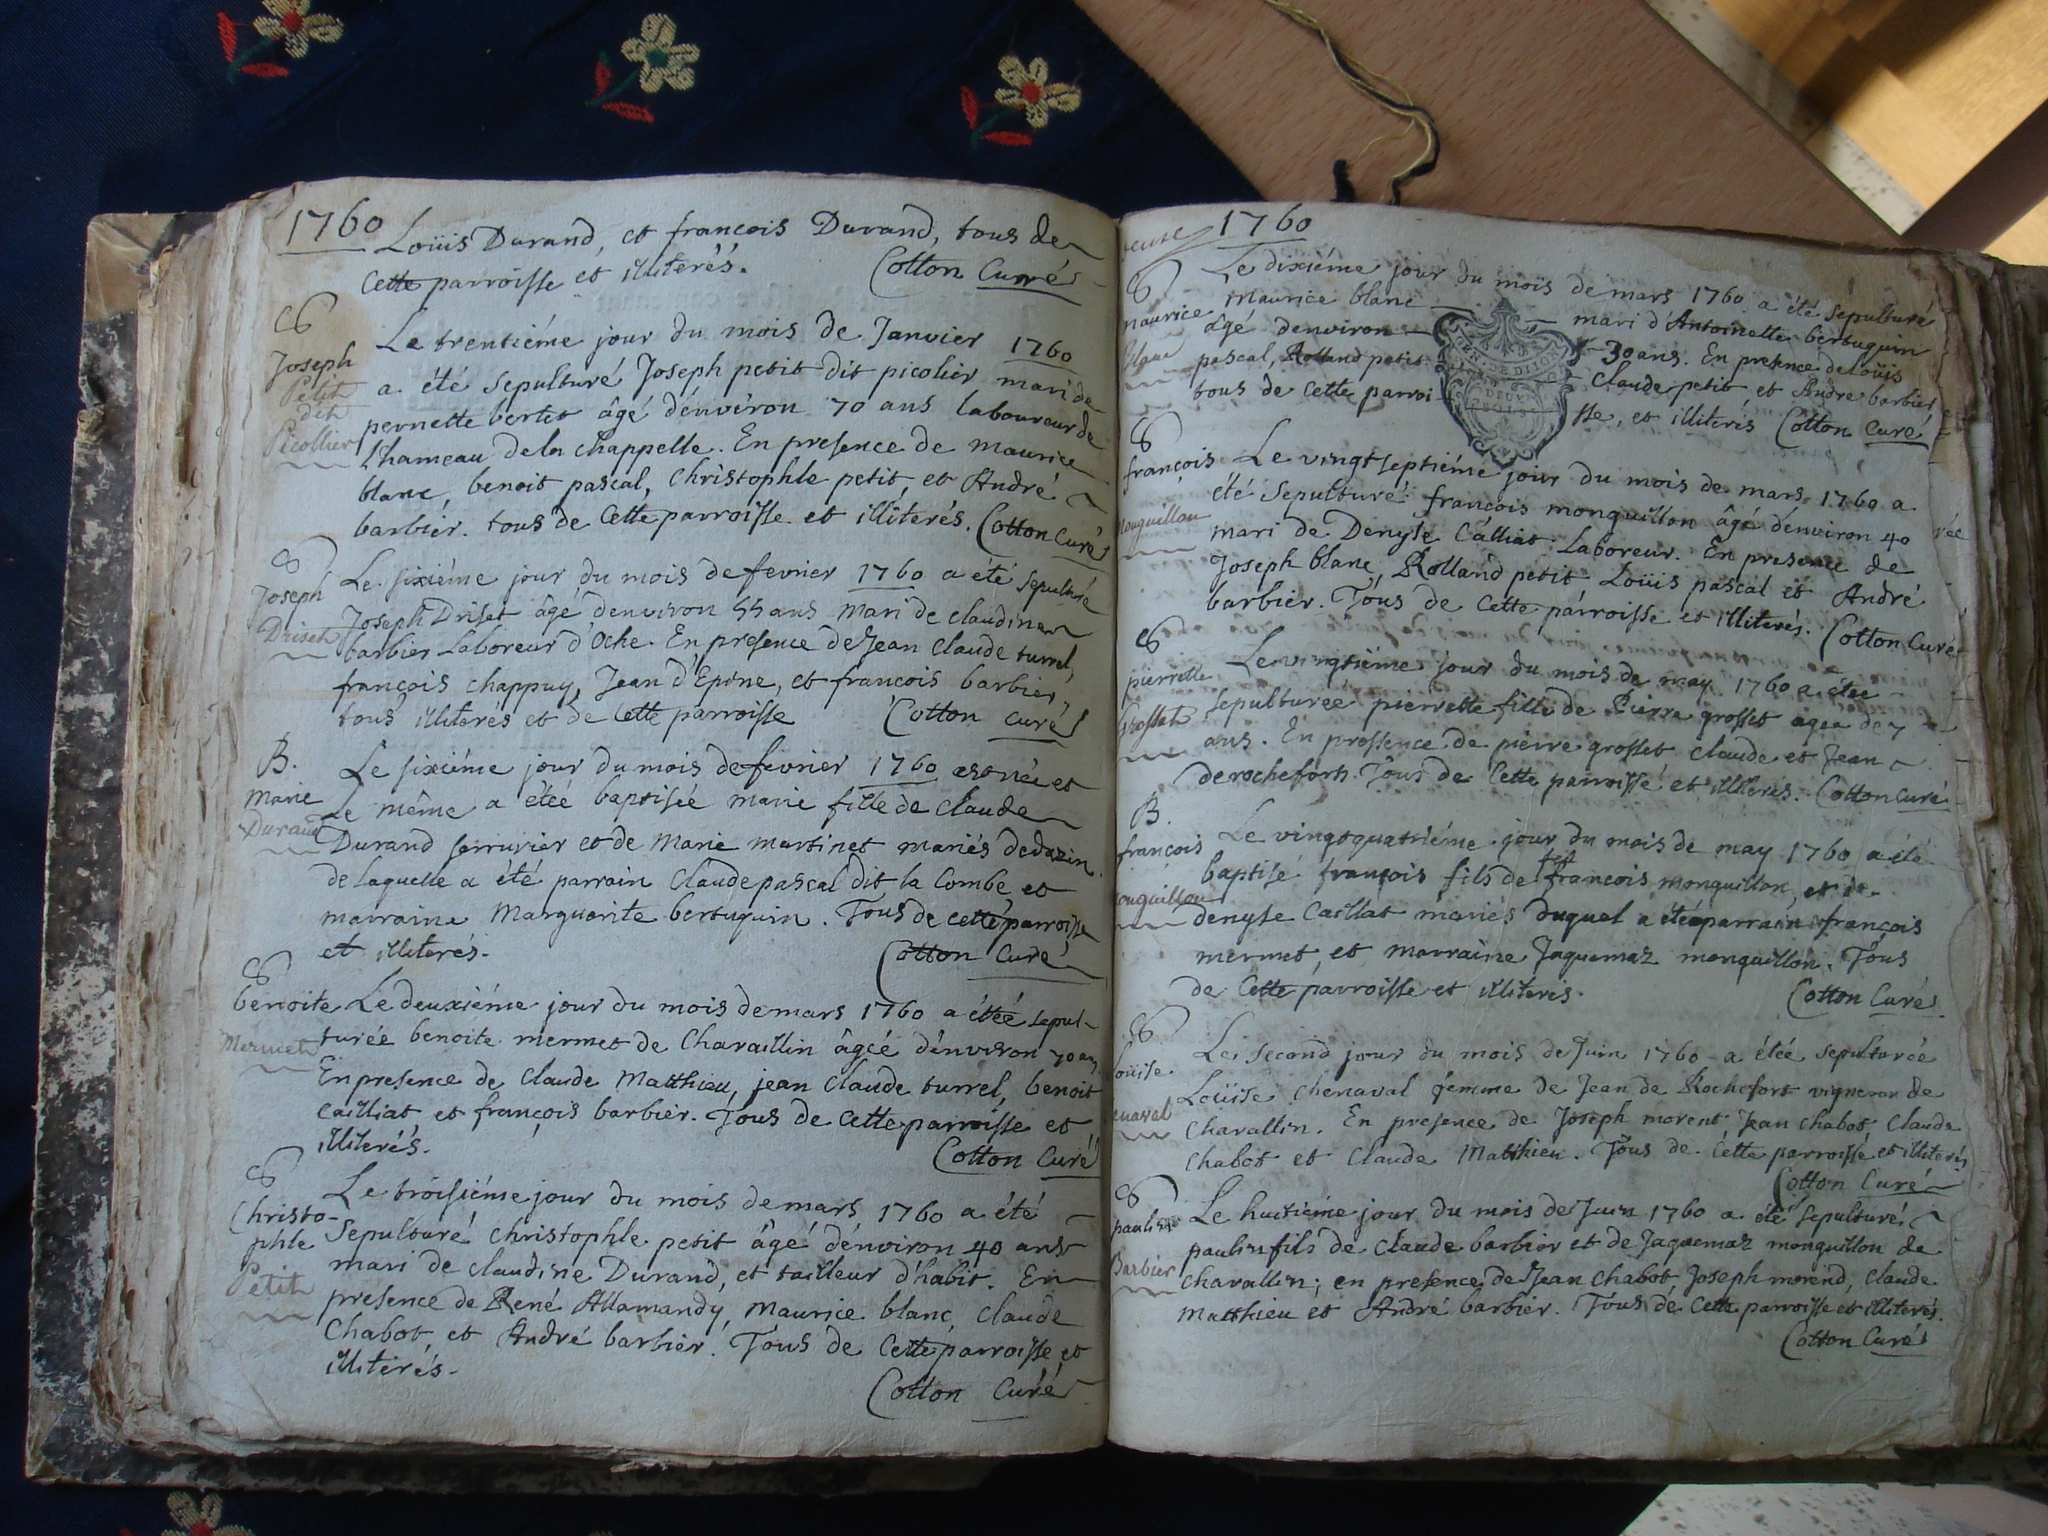 1760
Loüis Durand, et francois Durand, tous de
cette parroisse et illiterés. Cotton Curé
Joseph
Petit
dit
Picollier
Le trentiéme jour du mois de Janvier 1760
a été sepulturé Joseph petit dit picolier mari de
pernette bertet âgé d'énviron 70 ans laboureur de
l'hameau de la chappelle. En presence de maurice
blanc, benoit pascal, Christophle petit, et André
barbiér. tous de Cette parroisse et illiterés. Cotton Curé
Joseph
Driset
Le sixiéme jour du mois de fevrier 1760 a été sepulturé
Joseph Driset âgé denviron 55 ans mari de claudine
barbier Laboreur d'Oche. En presence de Jean Claude turrel,
françois chappuy, Jean d'Epine, et francois barbier,
tous illiterés et de Cette parroisse Cotton curé
B.
marie
Durand
Le sixiéme jour du mois de fevrier 1760 est née et
Le même a éteé baptisée marie fille de Claude
Durand serrurier et de Marie martinet mariés de
de Laquelle a été parrain Claude pascal dit la Combe, et
marraine Marguerite bertuquin. Tous de cette parroisse
et illiterés. Cotton Curé
benoite
Mermet
Le deuxiéme jour du mois de mars 1760 a éteé sepul-
turée benoite mermet de Chavaillin âgeé d'énviron 70 ans
En presence de Claude Matthieu, jean claude turrel, benoit
Cailliat et françois barbiér. Tous de cette parroisse et
illiterés. Cotton Curé
Christo-
phle
Petit
Le troisiéme jour du mois de mars 1760 a été
Sepulturé Christophle petit âgé d'énviron 40 ans
mari de claudine Durand, et tailleur d'habit. En
presence de René Allamandy, Maurice blanc, Claude
Chabot, et André barbier. Tous de Cette parroisse et
illiterés. Cotton Curé
1760
maurice
blanc
Le dixiéme jour du mois de mars 1760 a été sepulturé
Maurice blanc mari d'Antoinette bertuquin
âgé denviron 30 ans. En presence de Loüis
pascal, Rolland petit Claude petit, et Andre barbier
tous de cette parroisse, et illiteris Cotton Curé
françois
monquillon
Le vingtseptiéme jour du mois de mars 1760 a
été Sepulturé françois monquillon âgé d'énviron 40
mari de Denyse Calliat Laboreur. En presence de
Joseph blanc, Rolland petit Loüis pascal et André
barbier. Tous de Cette parroisse et illiterés. Cotton Curé
pierrette
Grosset
Le vingtiéme jour du mois de may 1760 a éteé
sepulturée pierrette fille de Pierre grosset ageé de 7
ans. En presence de pierre grosset claude et Jean
derochefort. Tous de Cette parroisse et illiterés. Cotton Curé
B.
françois
monquillon
Le vingtquatriéme jour du mois de may 1760 a été
baptisé françois fils de feu francois monquillon, et de
denyse Caillat mariés duquel a été parrain françois
mermet, et marraine Jaquemaz monquillon. Tous
de Cette parroisse et illiterés. Cotton Curé
Loüise
chenaval
Le second jour du mois de Juin 1760 a éteé sepulturée
Loüise chenaval femme de Jean de Rochefort vigneron de
Chavallin. En presence de Joseph morent, Jean Chabot, Claude
Chabot et Claude Matthieu. Tous de Cette parroisse et illiterés
Cotton Curé
paulin
Barbier
Le huitiéme jour du mois de Juin 1760 a été sepulturé
paulin fils de Claude barbier et de Jaquemaz monquillon de
chavallin; en presence de Jean Chabot, Joseph morend, Claude
Matthieu et André barbier. Tous de Cette parroisse et illiterés.
Cotton Curé